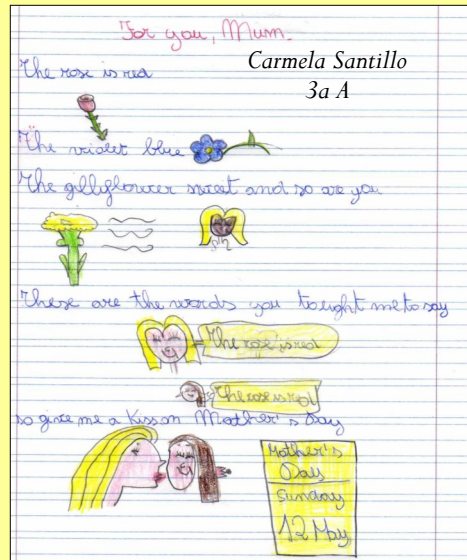 For you, Mum.
Carmela Santillo
3a A
The rose is red
The violet blue
The gillyflower sweet and so are you
These are the words you tought me to say
The rose is red
The rose is red
so give me a kiss on Mother's Day
Mother's
Day
Sunday
12 May